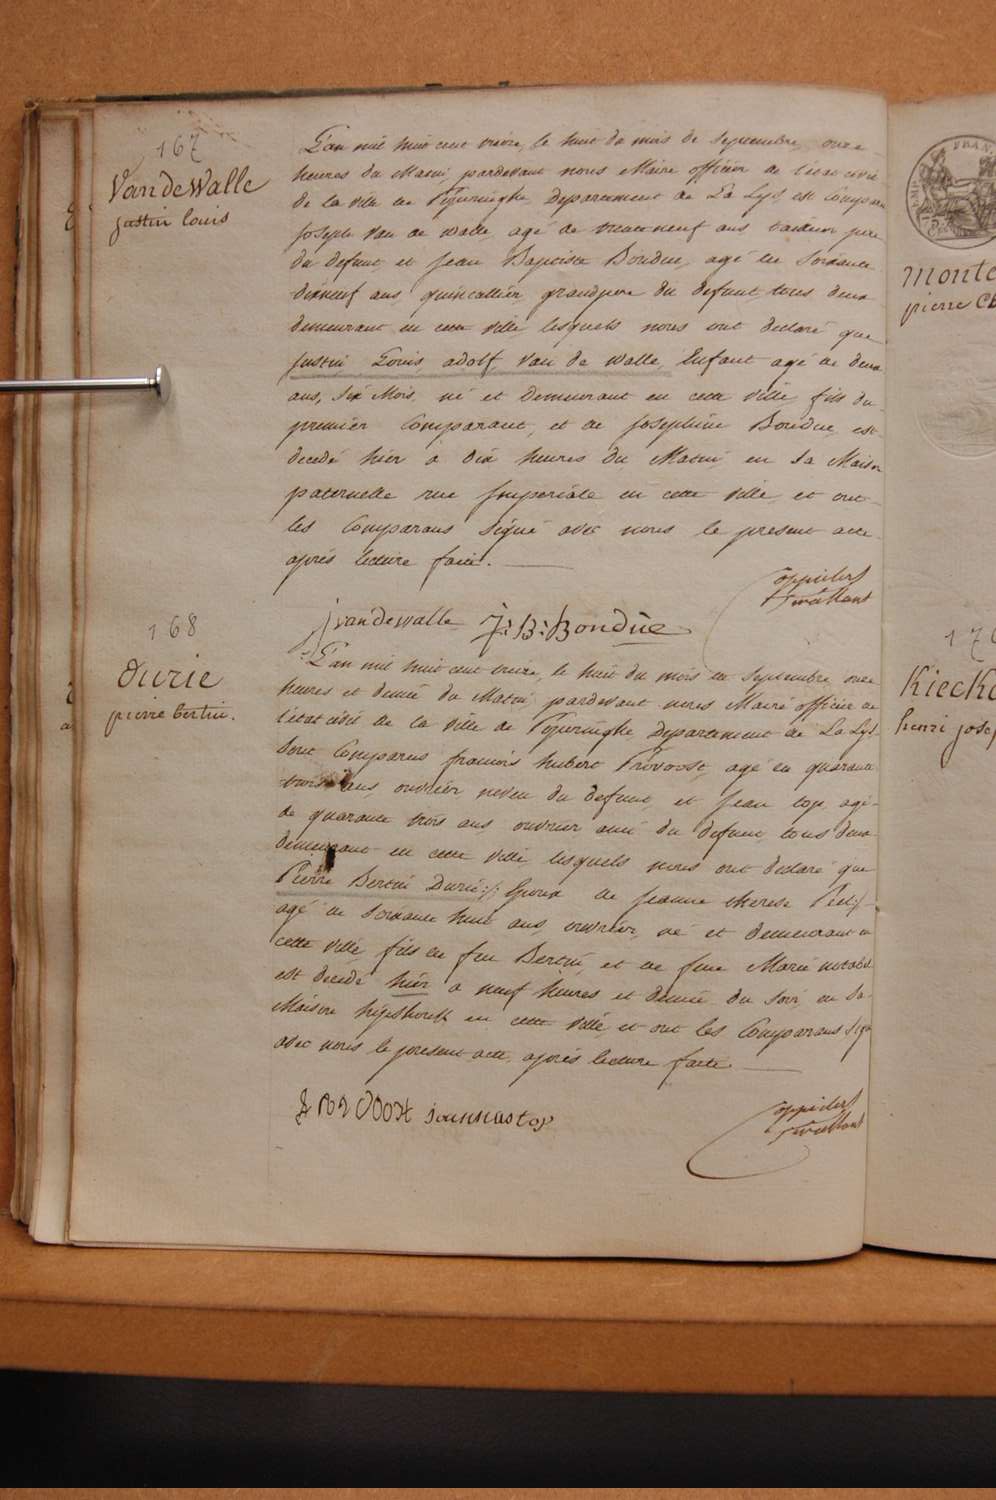 167
Van de Walle
justin louis
L'an mil huit cent treize, le huit du mois de Septembre, onze
heures du Matin, pardevant nous Maire officier de l'état civil
de la ville de Poperinghe Departement de La Lys, est Comparu
Joseph Van de Walle, agé de trente neuf ans père
du defunt et Jean Baptiste Bondue, agé de Soixante
dixneuf ans, quincallier, grandpere du defunt tous deux
demeurant en cette ville, lesquels nous ont declaré que
Justin, Louis, adolf, Van de Walle, Enfant agé de deux
ans, Six Mois, né et demeurant en cette ville, fils du
premier Comparant, et de Josephine Bondue, est
decedé hier a dix heures du Matin en Sa Maison
paternelle rue Imperiale en cette ville et ont
les Comparans Signé avec nous le present acte
après lecture faite.
jvandewalle J: B: Bondue
168
Durie
pierre bertin.
L'an mil huit cent treize, le huit du mois de Septembre onze
heures et demie du Matin, pardevant nous Maire officier de
l'état civil de la ville de Poperinghe Departement de La Lys
Sont Comparus francois hubert Provoost, agé de quarante
trois ans, ouvrier neveu du defunt, et Jean top, agé
de quarante trois ans, ouvrier ami du defunt, tous deux
demeurant en cette ville lesquels nous ont declaré que
Pierre Bertin Durie, Epoux de Jeanne therese
agé de Soixante huit ans, ouvrier, né et demeurant en
cette ville, fils de feu Bertin, et de feue Marie
est decedé hier a neuf heures et demie du Soir, en Sa
Maison en cette ville, et ont les Comparans Signé
avec nous le present acte, après lecture faite
joannes top
FRAN
EMP
pierre
176
Kiecke
henri josep